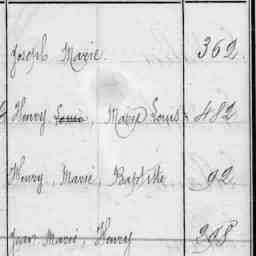 Joseph Marie. 362.
Henry Louis, Marie Louis 482
Henry, Marie Baptiste 92
Jean Marie, Henry 298